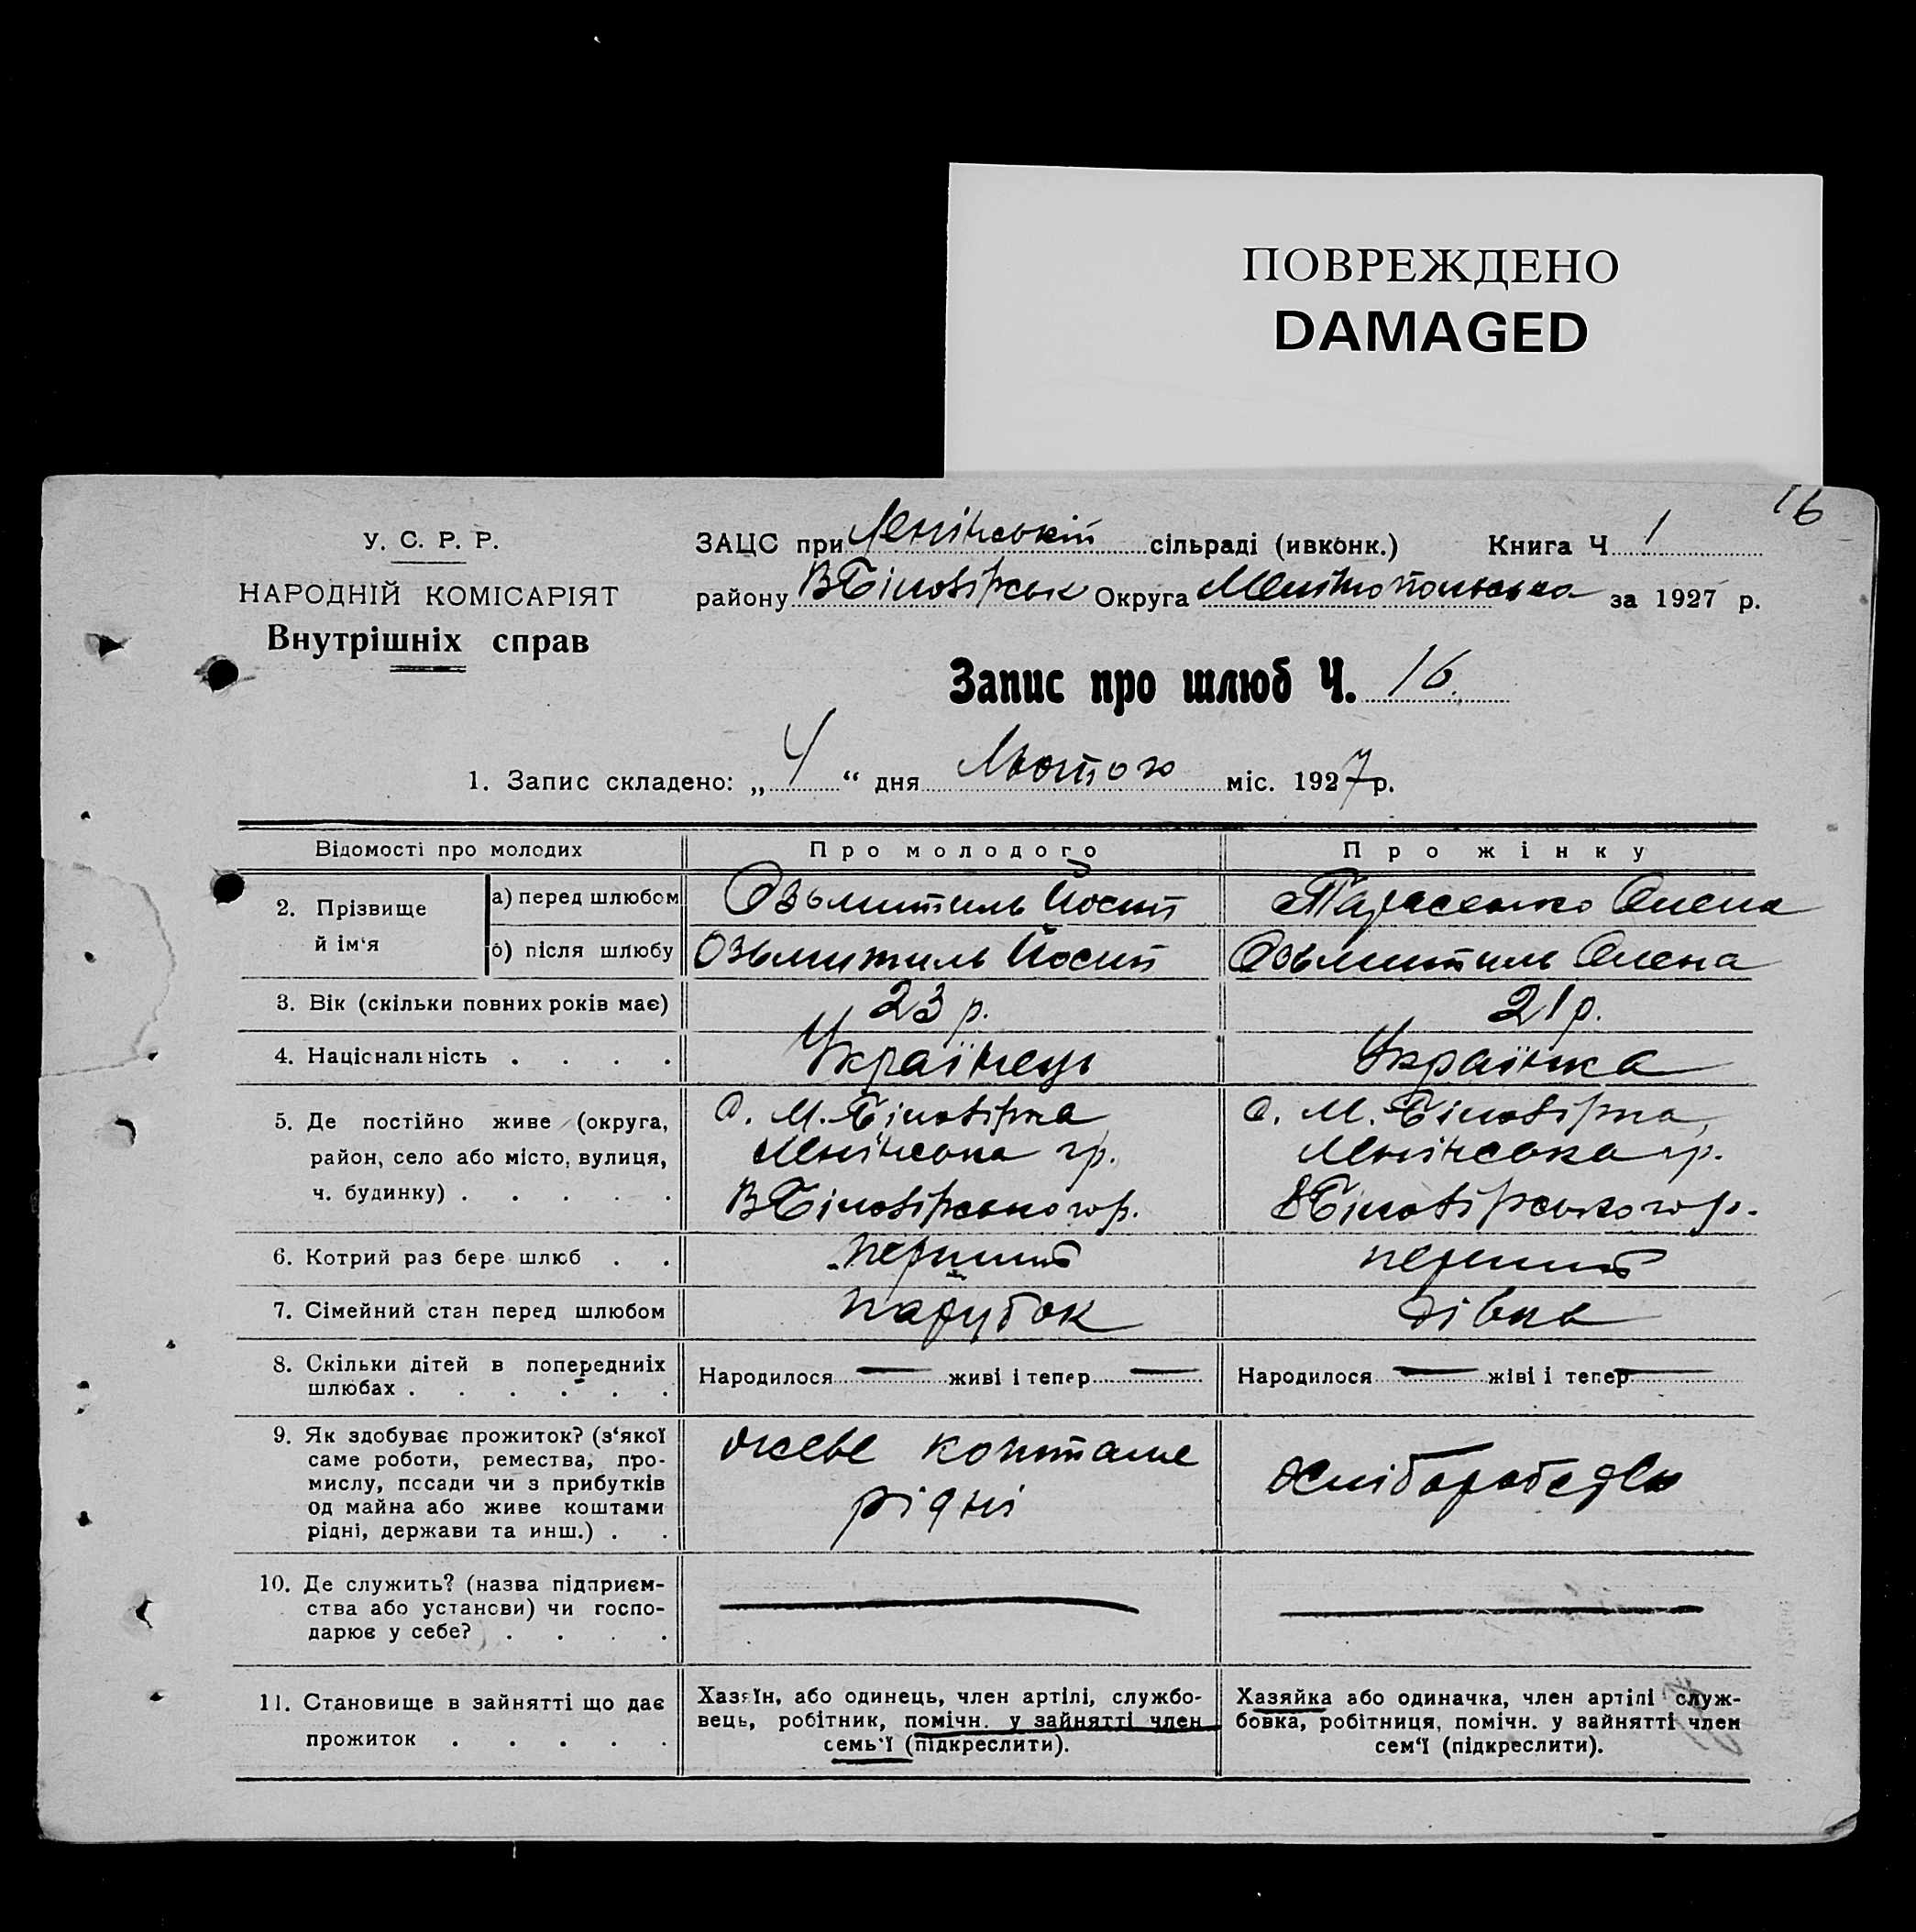 ПОВРЕЖДЕНО
DAMAGED
16
У. С. Р. Р.
НАРОДНІЙ КОМІСАРІЯТ
Внутрішніх справ
ЗАЦС при Ленінській сільраді (ивконк.) Книга Ч 1
району ВБіловірськ Округа Мелітопольська за 1927 р.
Запис про шлюб Ч. 16.
1. Запис складено: „ 4 “ дня Лютого міс. 1927 р.
Відомості про молодих
Про молодого
Про жінку
2. Прізвище й ім'я
а) перед шлюбом
Озьмитиль Йосип
Тарасенко Олена
б) після шлюбу
Озьмитиль Йосип
Озьмитиль Олена
3. Вік (скільки повних років має)
23 р.
21 р.
4. Національність . . . .
Українець
Українка
5. Де постійно живе (округа,
район, село або місто, вулиця,
ч. будинку) . . . . .
С. М. Білозірка
Ленінська гр.
ВБілозірського р.
С. М. Білозірка,
Ленінська гр.
ВБілозірського р.
6. Котрий раз бере шлюб . .
перший
перший
7. Сімейний стан перед шлюбом
парубок
дівка
8. Скільки дітей в попередниіх
шлюбах . . . . . .
Народилося — живі і тепер —
Народилося — жіві і тепер —
9. Як здобуває прожиток? (з'якої
саме роботи, ремества, про-
мислу, посади чи з прибутків
од майна або живе коштами
рідні, держави та инш.) . .
живе коштами
рідні
хліборобства
10. Де служить? (назва підприєм-
ства або установи) чи госпо-
дарює у себе? . . . .
11. Становище в зайнятті що дає
прожиток . . . . .
Хазяїн, або одинець, член артілі, службо-
вець, робітник, помічн. у зайнятті член
семь'ї (підкреслити).
Хазяйка або одиначка, член артілі служ-
бовка, робітниця, помічн. у зайнятті член
сем'ї (підкреслити).